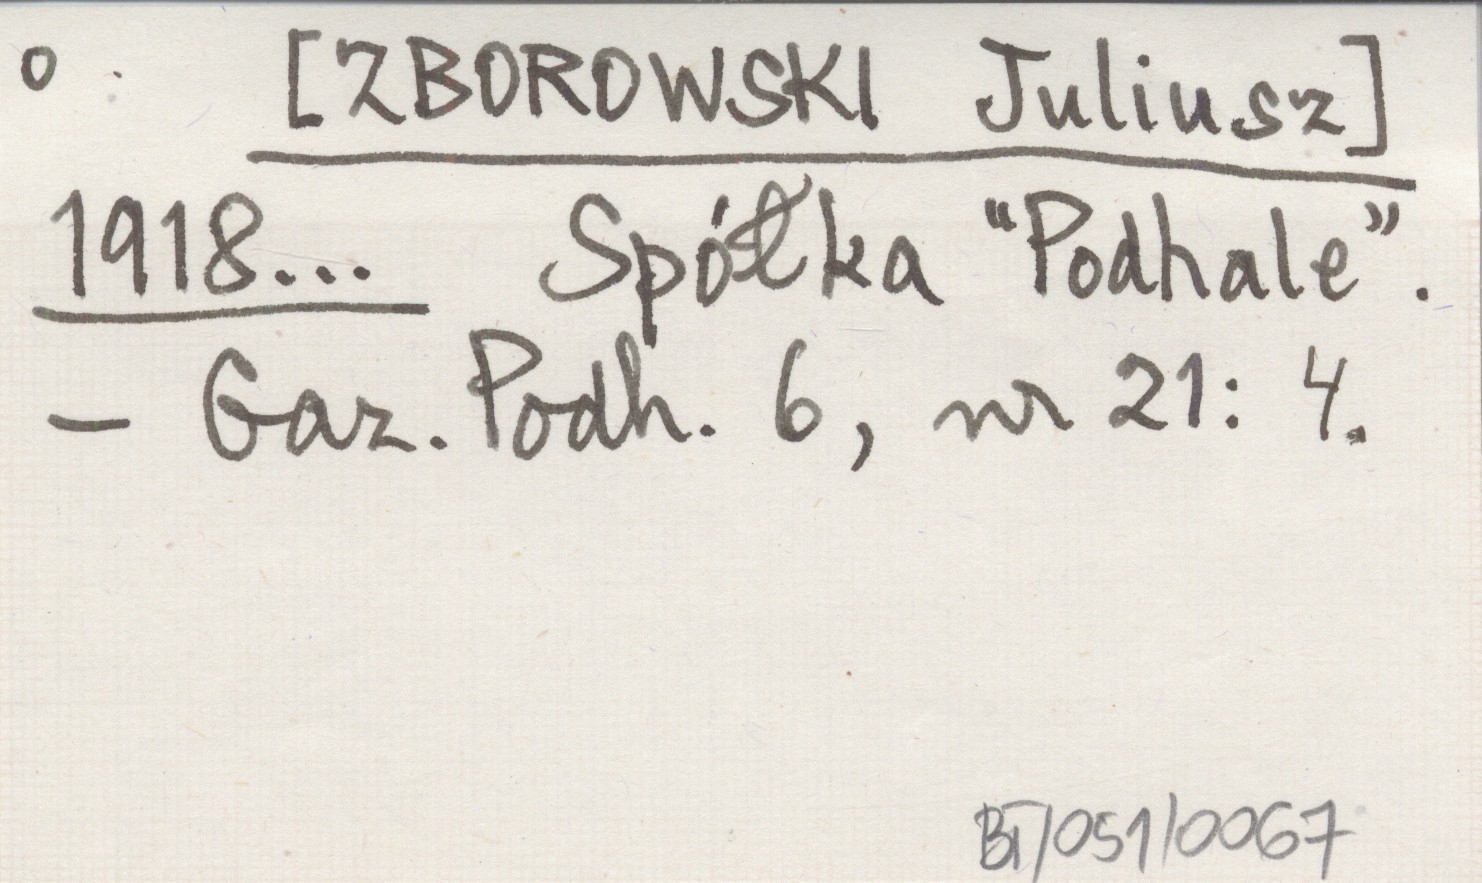 o [ZBOROWSKI Juliusz]
1918... Spółka "Podhale".
– Gaz. Podh. 6, nr 21: 4.
BT/051/0067